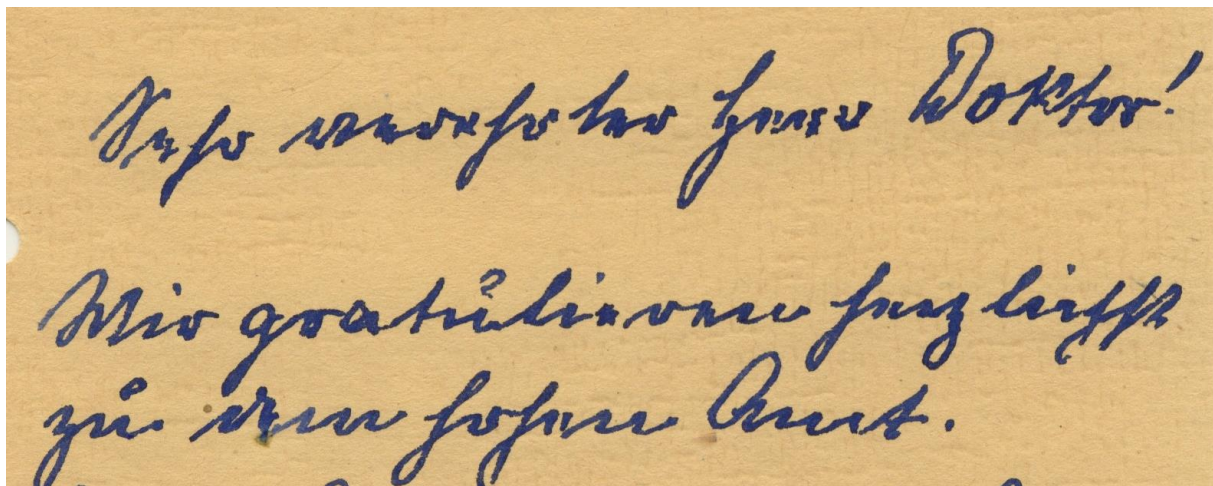 Sehr verehrter Herr Doktor!
Wir gratulieren herzlichst
zu dem hohen Amt.